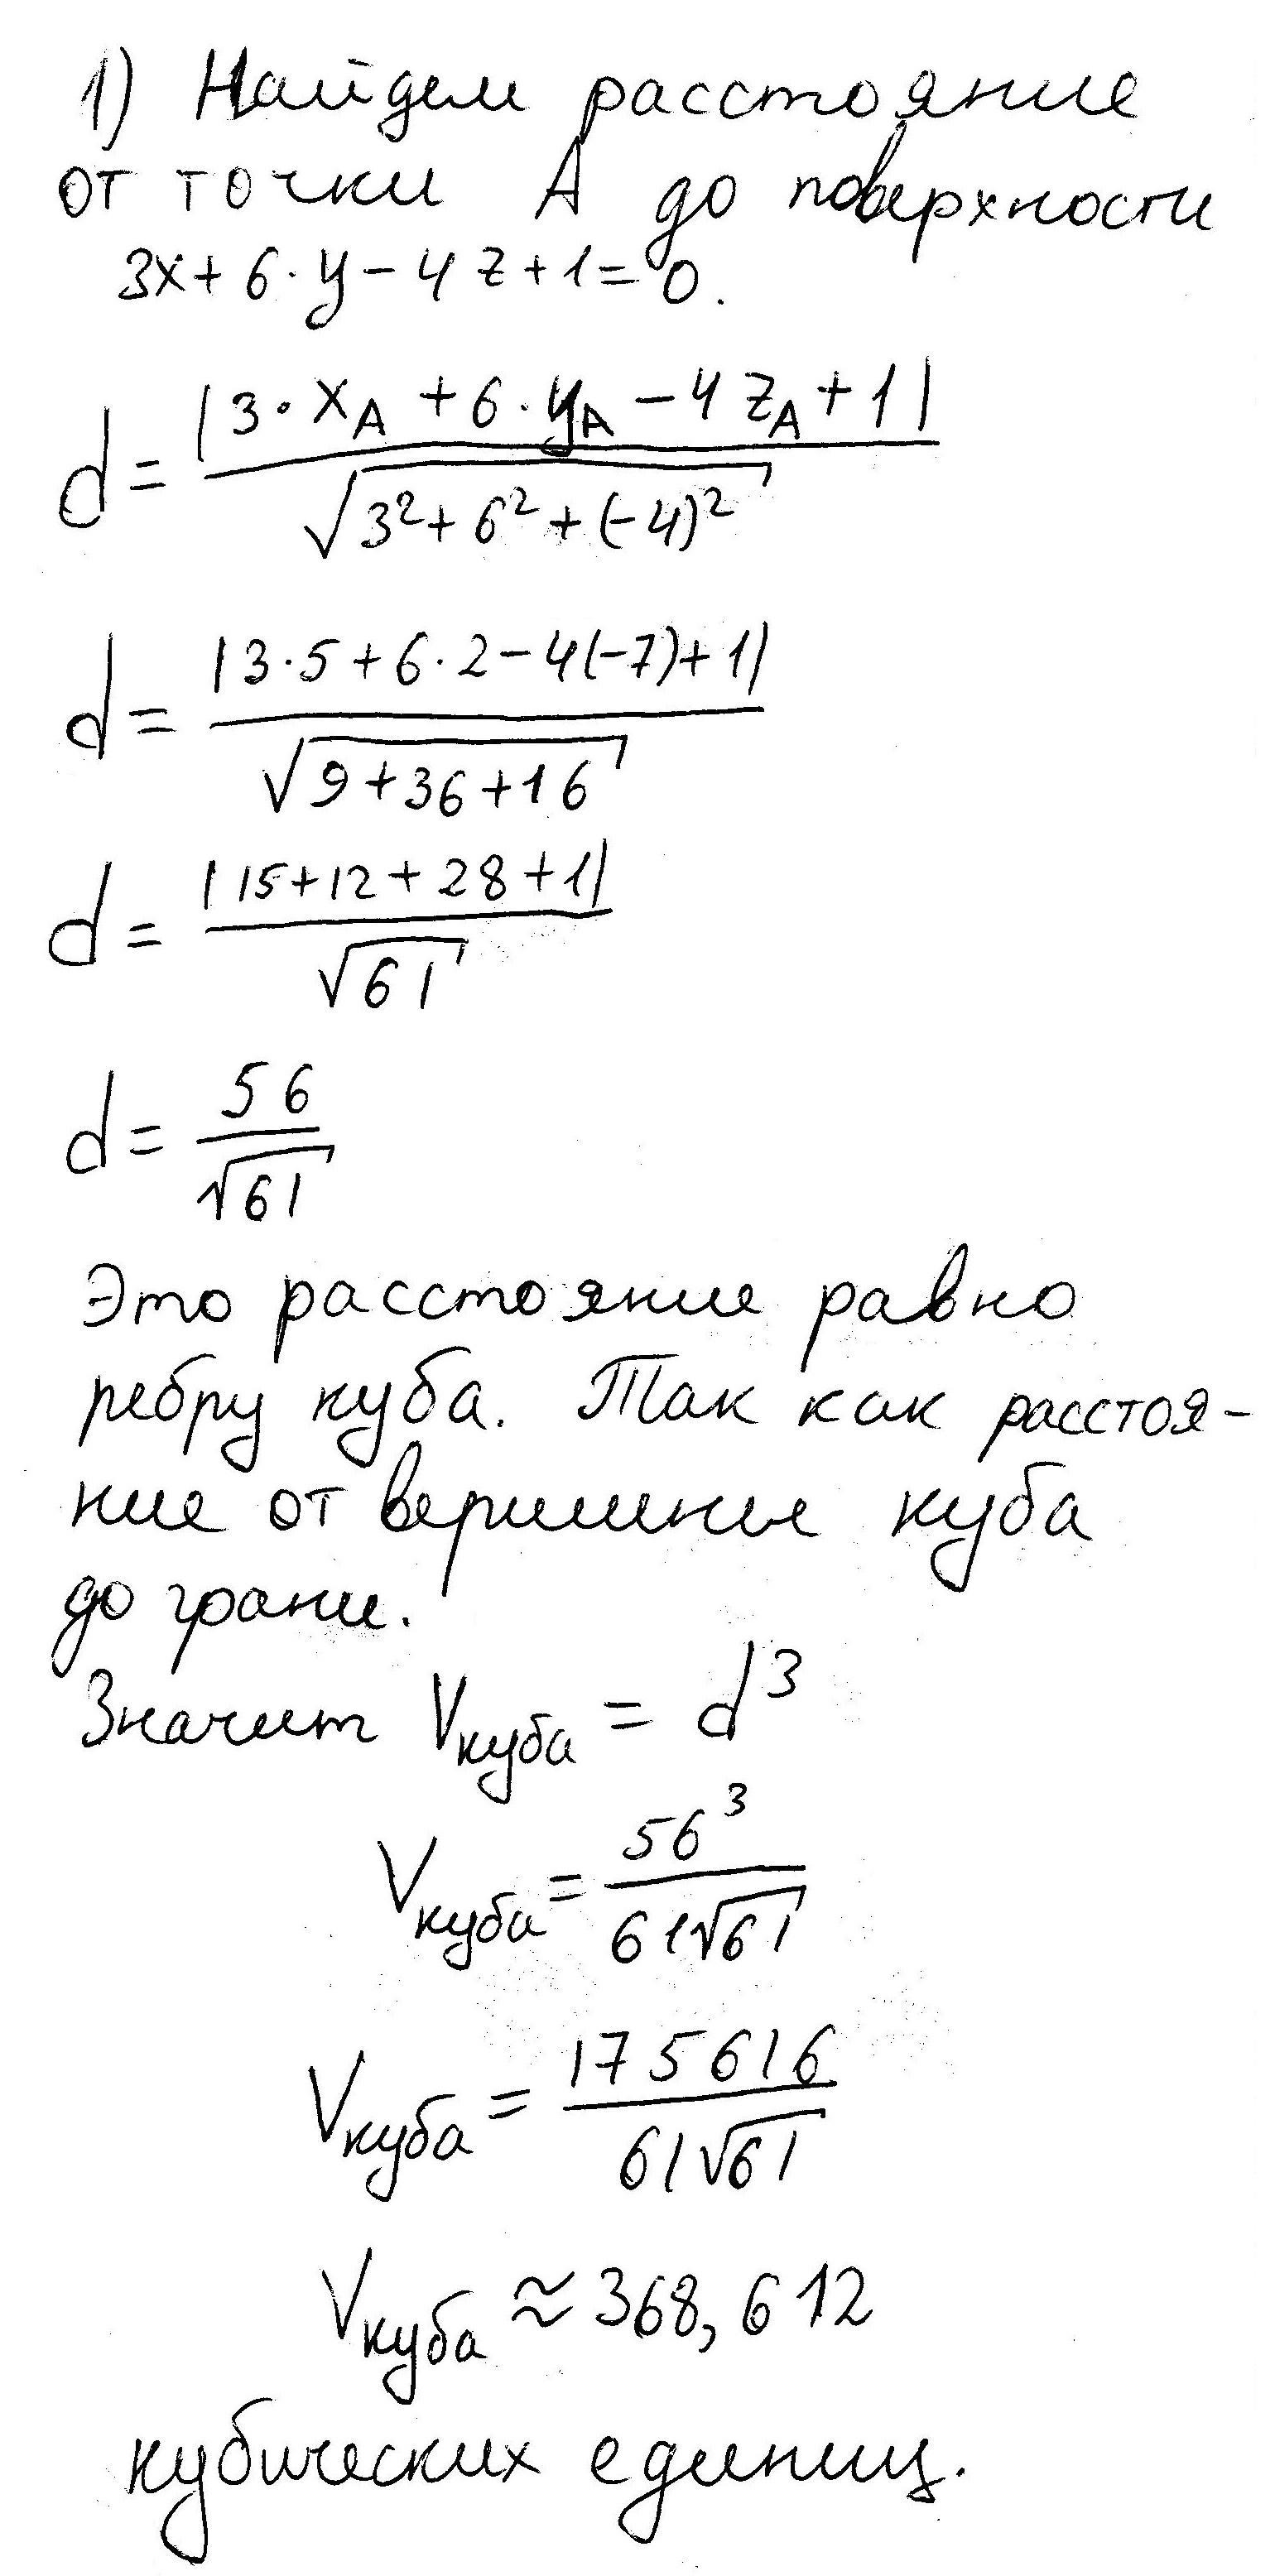 1) Найдем расстояние
от точки A до поверхности
3x + 6·y − 4z + 1 = 0.
d = |3·x_A + 6·y_A − 4z_A + 1| / √(3² + 6² + (−4)²)
d = |3·5 + 6·2 − 4(−7) + 1| / √(9 + 36 + 16)
d = |15 + 12 + 28 + 1| / √61
d = 56 / √61
Это расстояние равно
ребру куба. Так как расстоя-
ние от вершины куба
до грани.
Значит V_куба = d³
V_куба = 56³ / 61√61
V_куба = 175616 / 61√61
V_куба ≈ 368,612
кубических единиц.